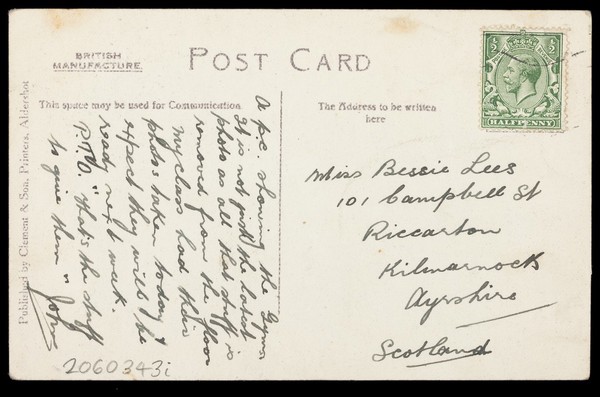 BRITISH
MANUFACTURE.
POST CARD
This space may be used for Communication
The Address to be written
here
½ ½
HALFPENNY
Published by Clement & Son, Printers, Aldershot
A p.c. showing the Gym.
It is not just the latest
photo as all that stuff is
removed from the floor
My class had their
photos taken today &
expect they will be
ready next week.
P.T.O. "That's the stuff
to give them"
John
Miss Bessie Lees
101 Campbell St
Riccarton
Kilmarnock
Ayrshire
Scotland
2060343i